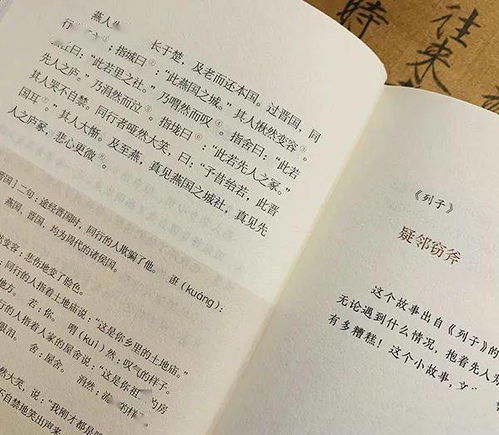 燕人
长于楚，及老而还本国。过晋国，同
行；指城曰：“此燕国之城。”其人愀然变容
曰：“此若里之社。”乃喟然而叹。指舍曰：“此若
先人之庐。”乃涓然而泣。指垅曰：“此若先人之冢。”
其人哭不自禁。同行者哑然大笑，曰：“予昔绐若，此晋
国耳。”其人大惭。及至燕，真见燕国之城社，真见先
人之庐冢，悲心更微。
国】二句：途经晋国时，同行的人欺骗了他。诳（kuáng）：
燕国、晋国，均为周代的诸侯国。
变容：悲伤地变了脸色。
：同行的人指着土地庙说：“这是你乡里的土地庙。”
方。若：你。喟（kuì）然：叹气的样子。
行的人指着人家的屋舍说：“这是你祖的房
舍：屋舍。涓然：的样
然大笑，说：“我刚才都是
不自禁地笑出声来
《列子》
疑邻窃斧
这个故事出自《列子》的
无论遇到什么情况，抱着先人观
有多糟糕！这个小故事，文
往来
特